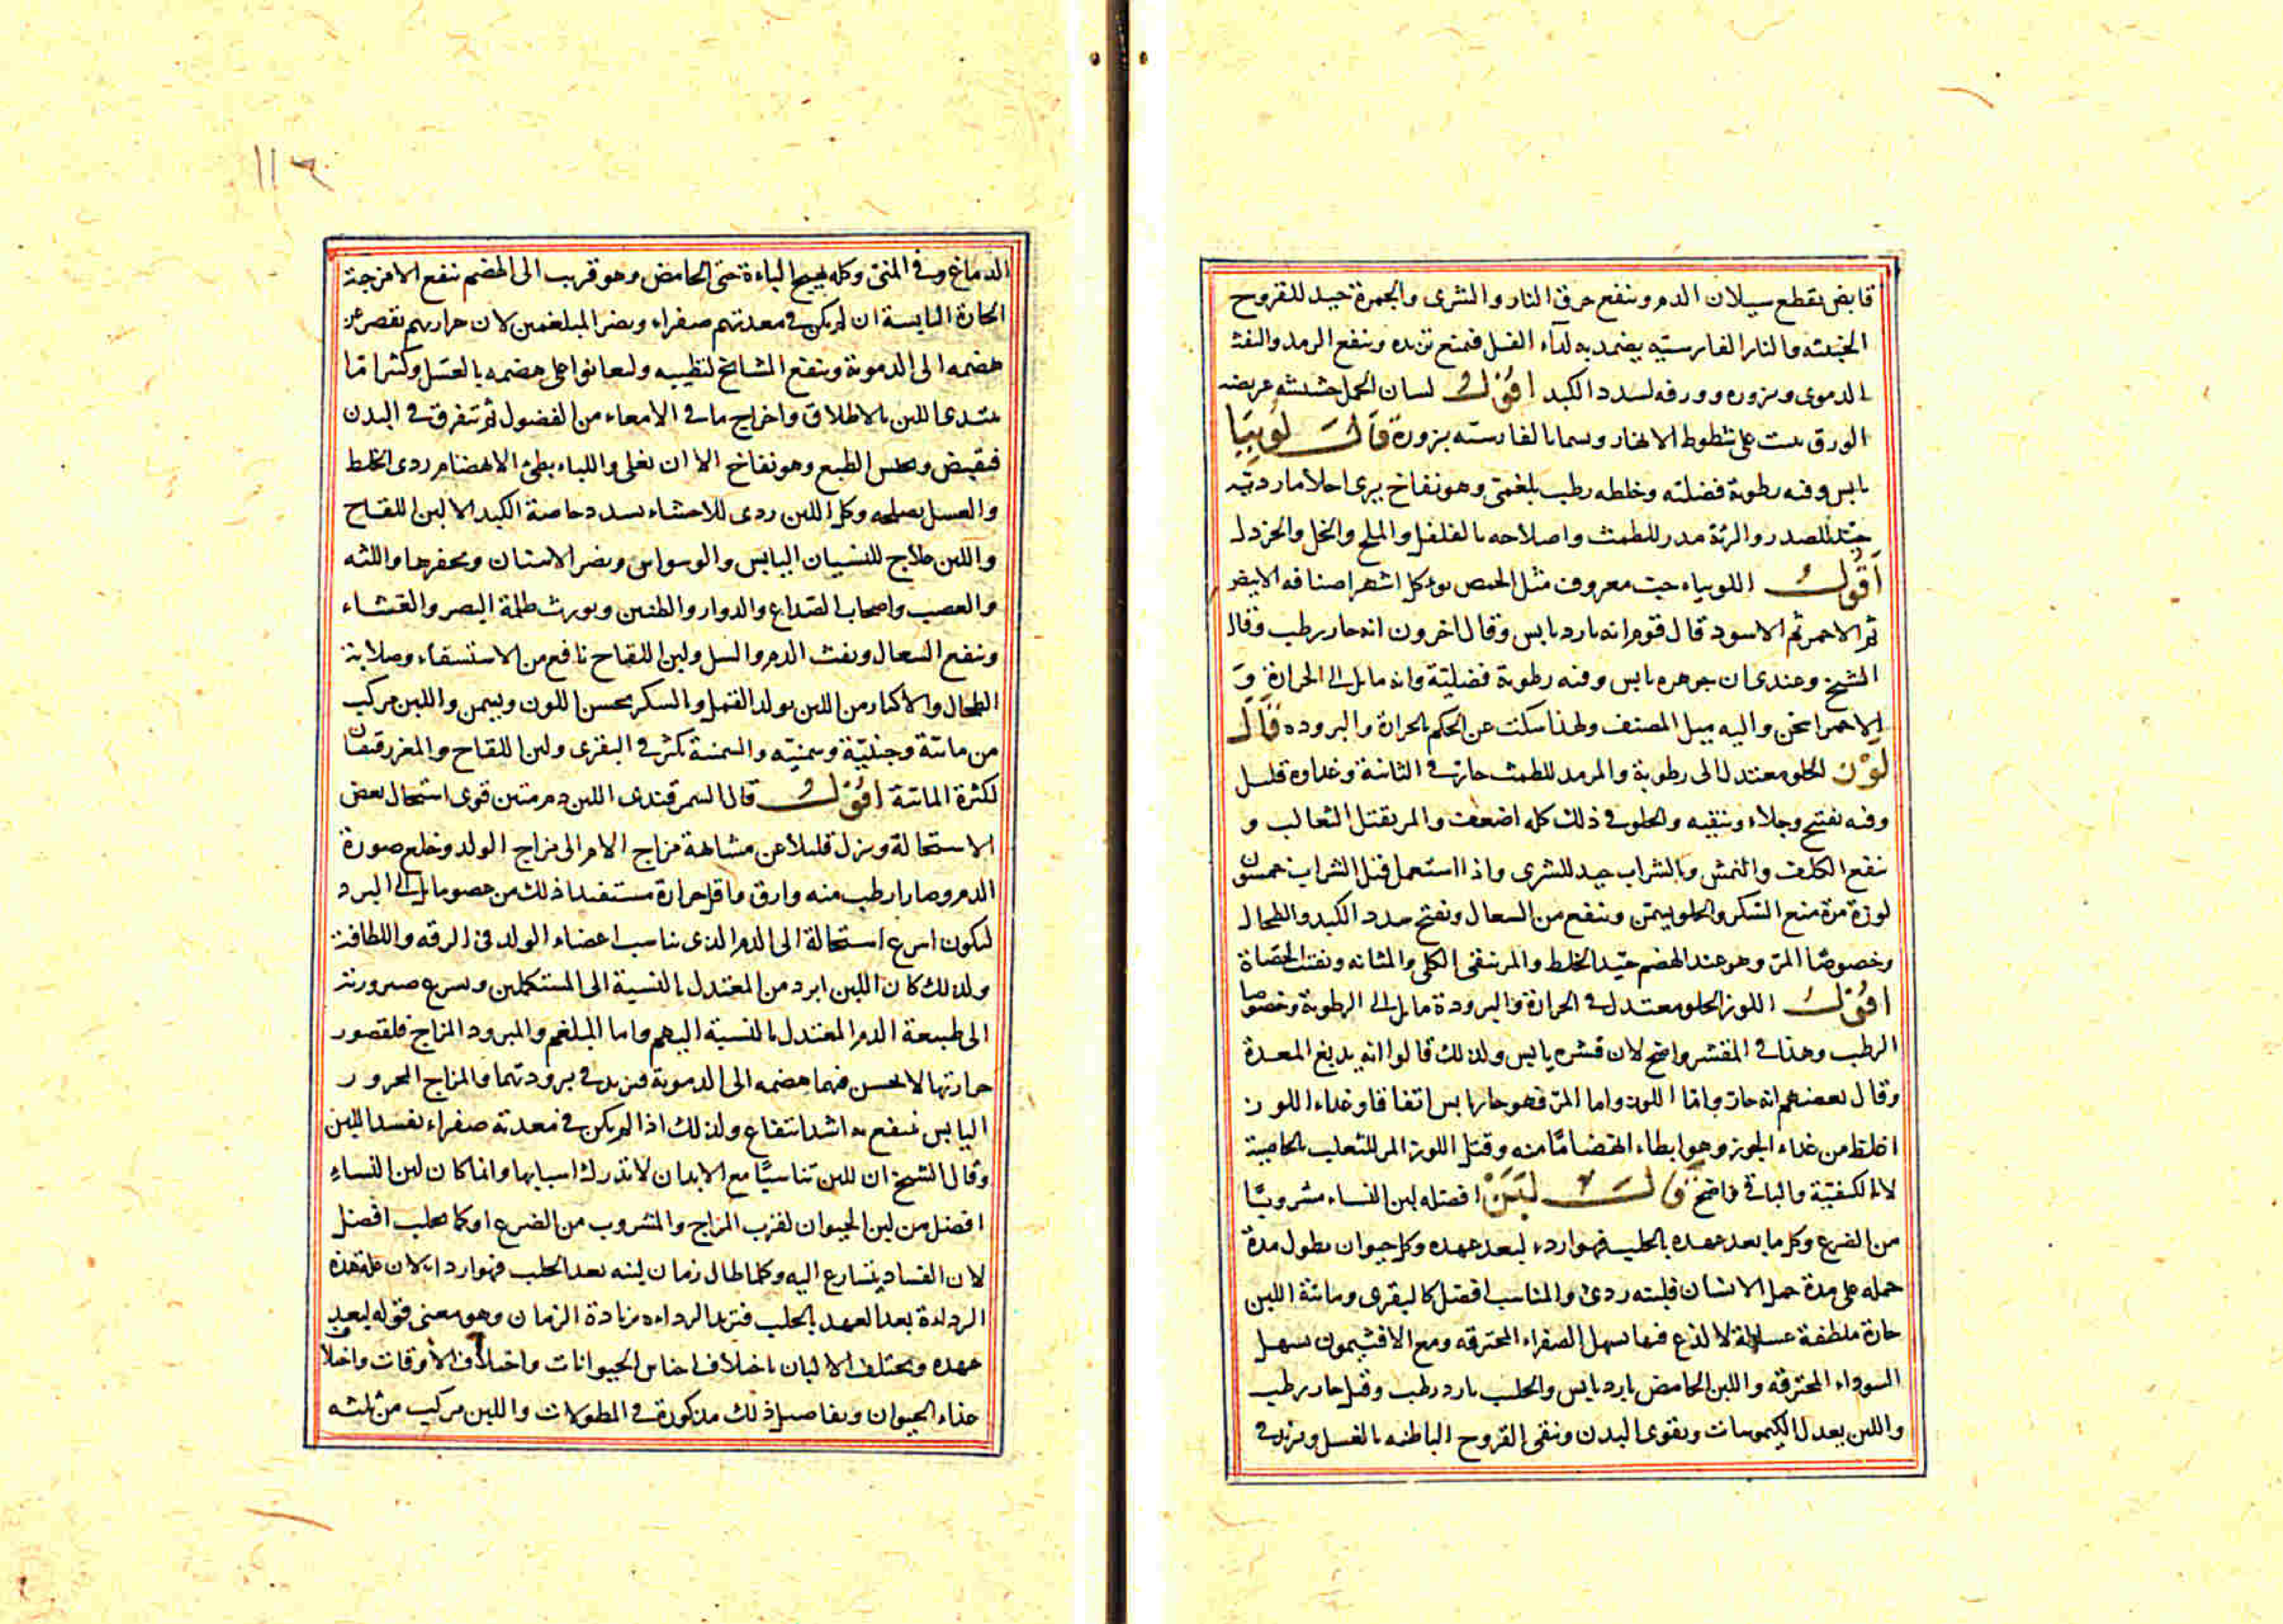 قابض يقطع سيلان الدم وينفع حرق النار والشرى والجمرة جيد للقروح
الخبيثه والنار الفارسيه يضمد به لداء الفيل فيمنع تزيده وينفع الرمد والنفث
الدموى وبزوره وورقه لسدد الكبد اقول لسان الحمل حشيشه عريضه
الورق ينبت على شطوط الانهار ويسما بالفارسيه بزورة قال لوبيا
يابس وفيه رطوبة فضليته وخلطه رطب بلغمى وهو نفاخ يرى احلاما رديه
جيد للصدر والرئة مدر للطمث واصلاحه بالفلفل والملح والخل والخردل
اقول اللوبياء حب معروف مثل الحمص يؤكل اشهر اصنافه الابيض
ثم الاحمر ثم الاسود قال قوم انه بارد يابس وقال اخرون انه حار رطب وقال
الشيخ وعندى ان جوهره يابس وفيه رطوبة فضليتة وانه مايل الى الحرارة و
الاحمر اسخن واليه ميل المصنف ولهذا سكت عن الحكم بالحرارة والبروده قال
لوز الحلو معتدل الى رطوبة والمر مدر للطمث حار فى الثانية وغداوه قليل
وفيه تفتيح وجلاء وتنقيه والحلو فى ذلك كله اضعف والمر يقتل الثعالب و
ينفع الكلف والنمش وبالشراب جيد للشرى واذا استعمل قبل الشراب خمسون
لوزة مرة منع السكر والحلو يسمن وينفع من السعال ويفتح سدد الكبد والطحال
وخصوصا المر وهو عند الهضم جيد الخلط والمر ينقى الكلى والمثانه ويفتت الحصاة
اقول اللوز الحلو معتدل فى الحرارة والبرودة مايل الى الرطوبة وخصوصا
الرطب وهذا فى المقشر واضح لان قشره يابس ولذلك قالوا انه يدبغ المعدة
وقال بعضهم انه حار واما اللوز واما المر فهو حار يابس اتفاقا وغداء اللوز
اغلظ من غداء الجوز وهو ابطاء انهضاما منه وقتل اللوز المر للثعلب بالخاصية
لا بالكيفيّة والباقى واضح قال لبن افضله لبن النساء مشروبا
من الضرع وكل ما بعد عهده بالحليب فهو اردء لبعد عهده وكل حيوان يطول مدة
حمله على مدة حمل الانسان فلبنه ردى والمناسب افضل كالبقرى ومائية اللبن
حارة ملطفة غسالة لا لذع فيها تسهل الصفراء المحترقه ومع الافثيمون يسهل
السوداء المحترقه واللبن الحامض بارد يابس والحليب بارد رطب وقيل حار رطب
واللبن يعدل الكيموسات ويقوى البدن وينقى القروح الباطنه بالغسل ويزيد فى
١١٦
الدماغ وفى المنى وكله يهيج الباءة حتى الحامض وهو قريب الى الهضم ينفع الامزجة
الحارة اليابسة ان لم يكن فى معدتهم صفراء ويضر المبلغمين لان حرارتهم تقصر عن
هضمه الى الدموية وينفع المشايخ لترطيبه وليعانوا على هضمه بالعسل وكثيرا ما
يبتدى اللبن بالاطلاق واخراج ما فى الامعاء من الفضول ثم يتفرق فى البدن
فيقبض ويحبس الطبع وهو نفاخ الا ان يغلى واللباء بطئ الانهضام ردى الخلط
والعسل يصلحه وكل اللبن ردى للاحشاء يسدد خاصة الكبد الا لبن اللقاح
واللبن علاج للنسيان اليابس والوسواس ويضر الاسنان ويحفرها واللثه
والعصب واصحاب الصداع والدوار والطنين ويورث ظلمة البصر والغشاء
وينفع السعال ونفث الدم والسل ولبن اللقاح نافع من الاستسقاء وصلابة
الطحال والاكثار من اللبن يولد القمل والسكر يحسن اللون ويسمن واللبن مركب
من مائية وجبنيّة وسمنيّه والسمنية تكثر فى البقرى ولبن اللقاح والمعز رقيقان
لكثرة المائية اقول قال السمرقندى اللبن دم متين قوى استحال بعض
الاستحالة ونزل قليلا عن مشابهة مزاج الام الى مزاج الولد وخلع صورة
الدم وصار ارطب منه وارق واقل حرارة مستفيدا ذلك من عضو مايل الى البرد
ليكون اسرع استحالة الى الدم الذى يناسب اعضاء الولد فى الرقه واللطافة
ولذلك كان اللبن ابرد من المعتدل بالنسبة الى المستكملين ويسرع صيرورته
الى طبيعة الدم المعتدل بالنسبة اليهم واما المبلغم والمبرود المزاج فلقصور
حرارتها لا يحسن فيهما هضمه الى الدموية فيزيد فى برودتهما والمزاج المحرور
اليابس ينتفع به اشد انتفاع ولذلك اذا لم يكن فى معدته صفراء تفسد اللبن
وقال الشيخ ان للبن تناسبًا مع الابدان لا تدرك اسبابها وانما كان لبن النساء
افضل من لبن الحيوان لقرب المزاج والمشروب من الضرع او كما يحلب افضل
لان الفساد يتسارع اليه وكلما طال زمان لبثه بعد الحلب فهو اردا لان علة هذه
الرداءة بعد العهد بالحلب فتزيد الرداءه بزيادة الزمان وهو معنى قوله لبعد
عهده ويختلف الالبان باختلاف اجناس الحيوانات واختلاف الاوقات واختلاف
غذاء الحيوان وتفاصيل ذلك مذكورة فى المطولات واللبن مركب من ثلثه